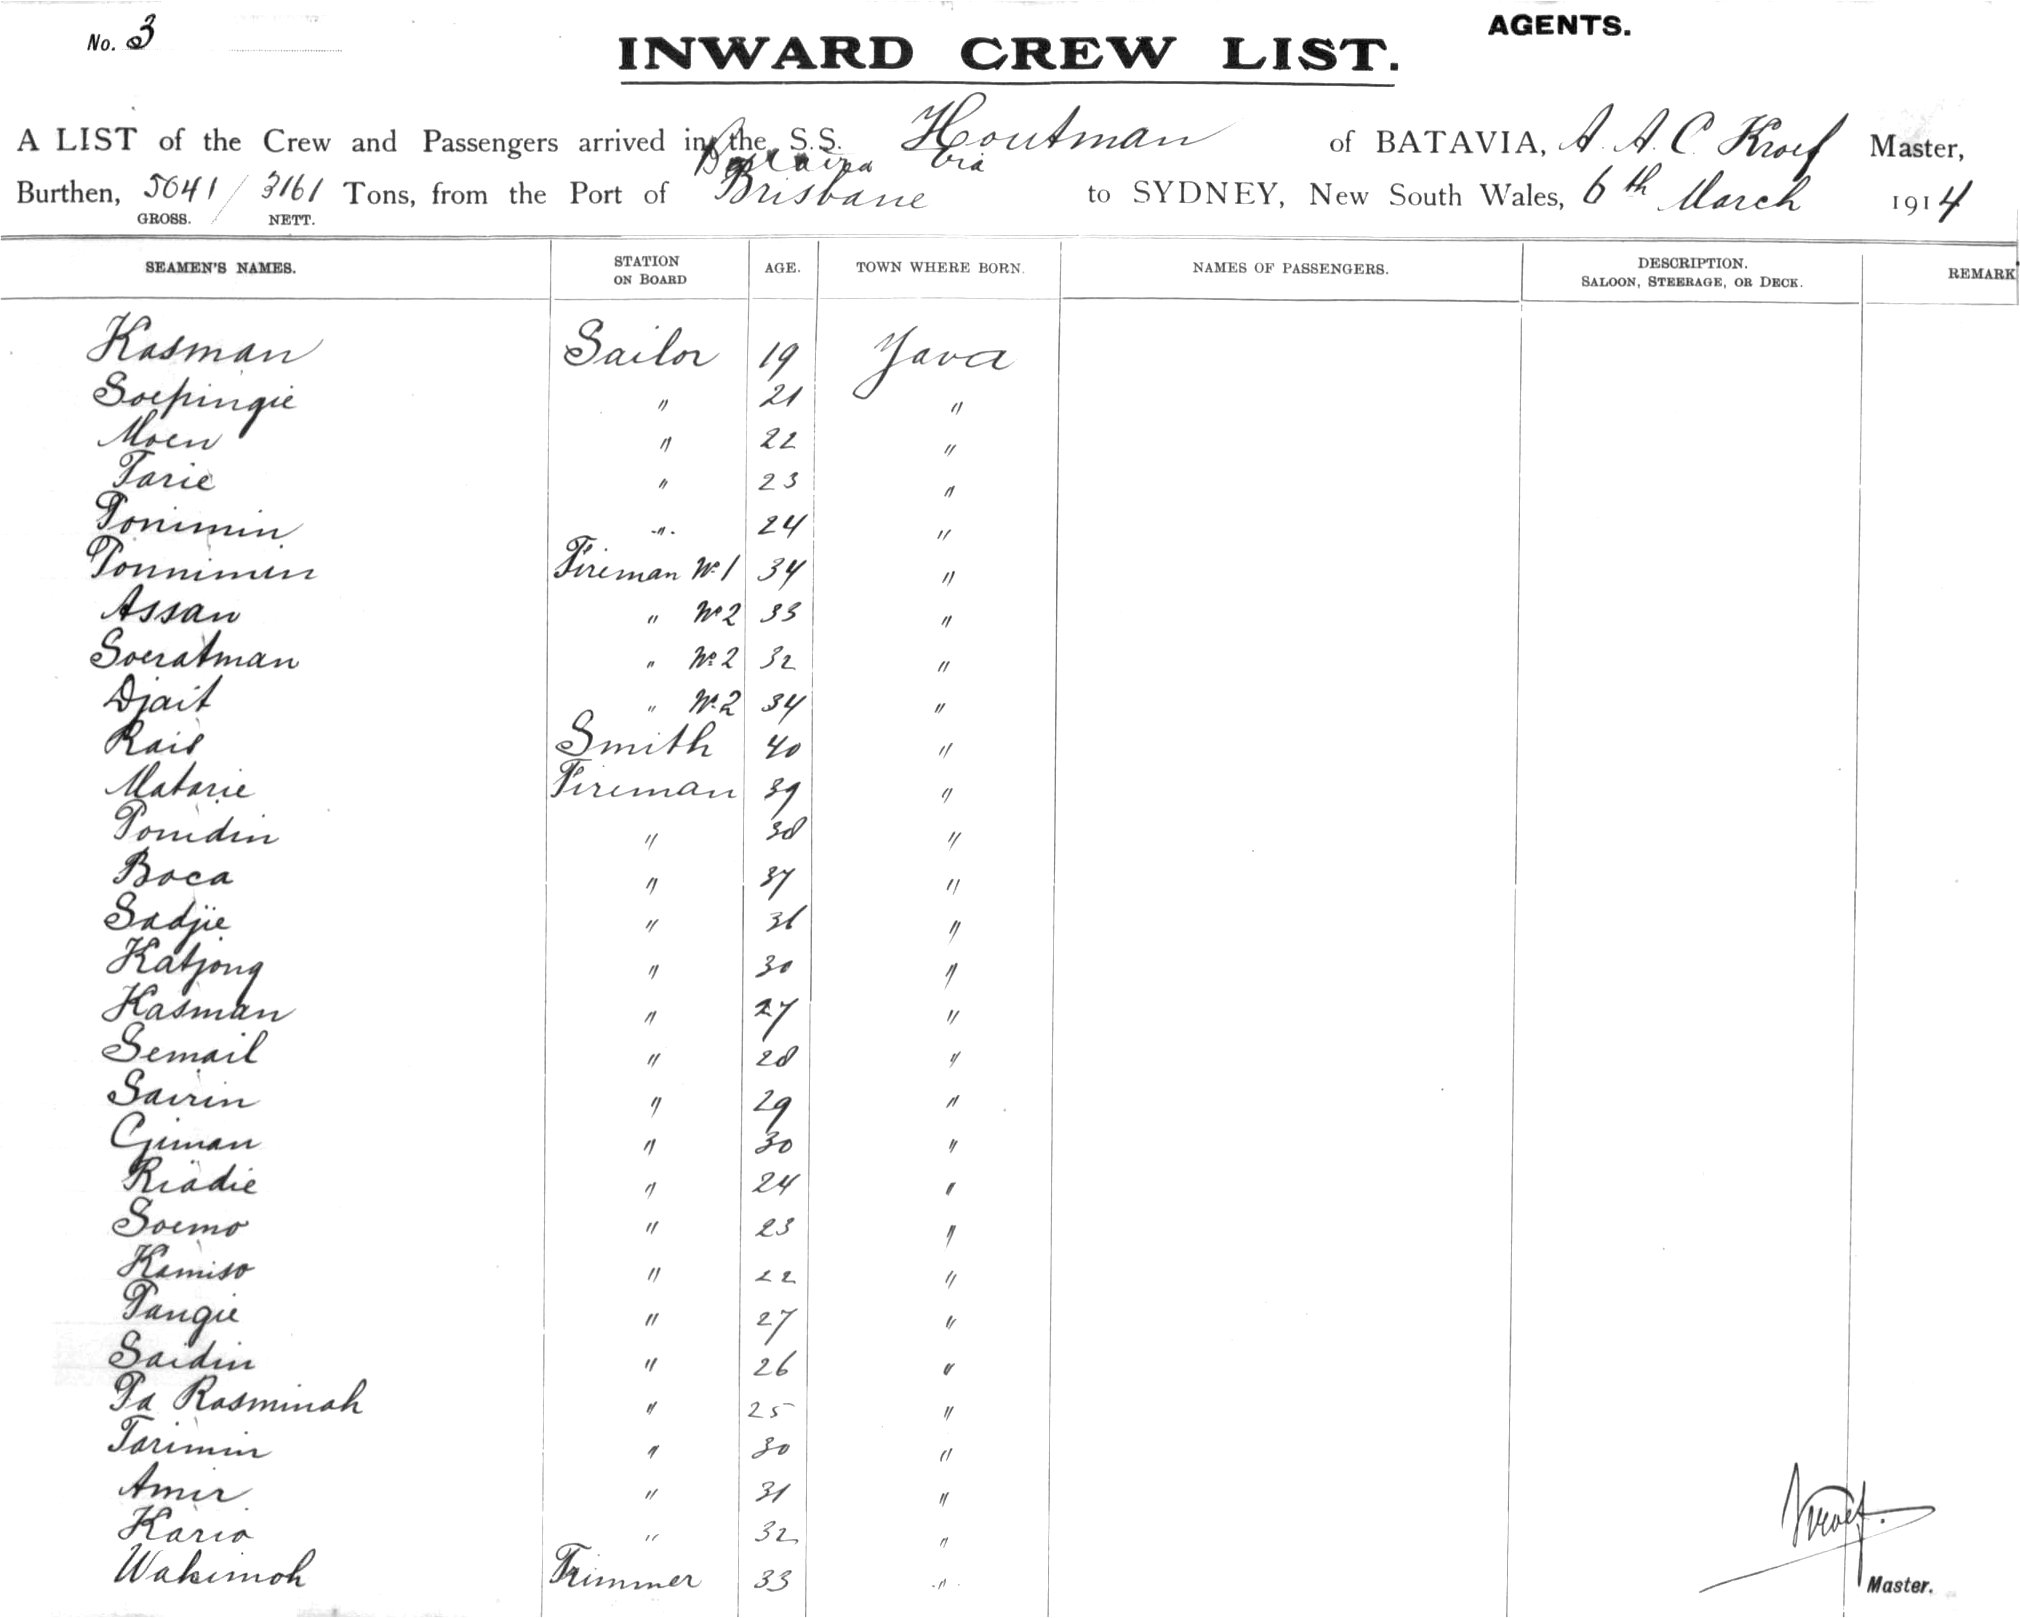 No. 3
AGENTS.
INWARD CREW LIST.
A LIST of the Crew and Passengers arrived in the S.S. Houtman of BATAVIA, A. A. C. Kroef Master,
via
Burthen, 5641 / 3161 Tons, from the Port of Brisbane to SYDNEY, New South Wales, 6th March 1914
GROSS. NETT.
SEAMEN'S NAMES. STATION ON BOARD AGE. TOWN WHERE BORN. NAMES OF PASSENGERS. DESCRIPTION. SALOON, STEERAGE, OR DECK. REMARK
Kasman Sailor 19 Java
Soepingie " 21 "
Moen " 22 "
Tarie " 23 "
Ponimin " 24 "
Ponnimin Fireman No 1 34 "
Assan " No 2 33 "
Soeratman " No 2 32 "
Djait " No 2 34 "
Rais Smith 40 "
Matarie Fireman 39 "
Ponidin " 38 "
Boca " 37 "
Sadjie " 36 "
Katjong " 30 "
Kasman " 27 "
Semail " 28 "
Sairin " 29 "
Giman " 30 "
Riadie " 24 "
Soemo " 23 "
Kamiso " 22 "
Pangie " 27 "
Saidin " 26 "
Pa Rasminah " 25 "
Tarimin " 30 "
Amir " 31 "
Kario " 32 "
Wakimoh Trimmer 33 "
Kroef.
Master.